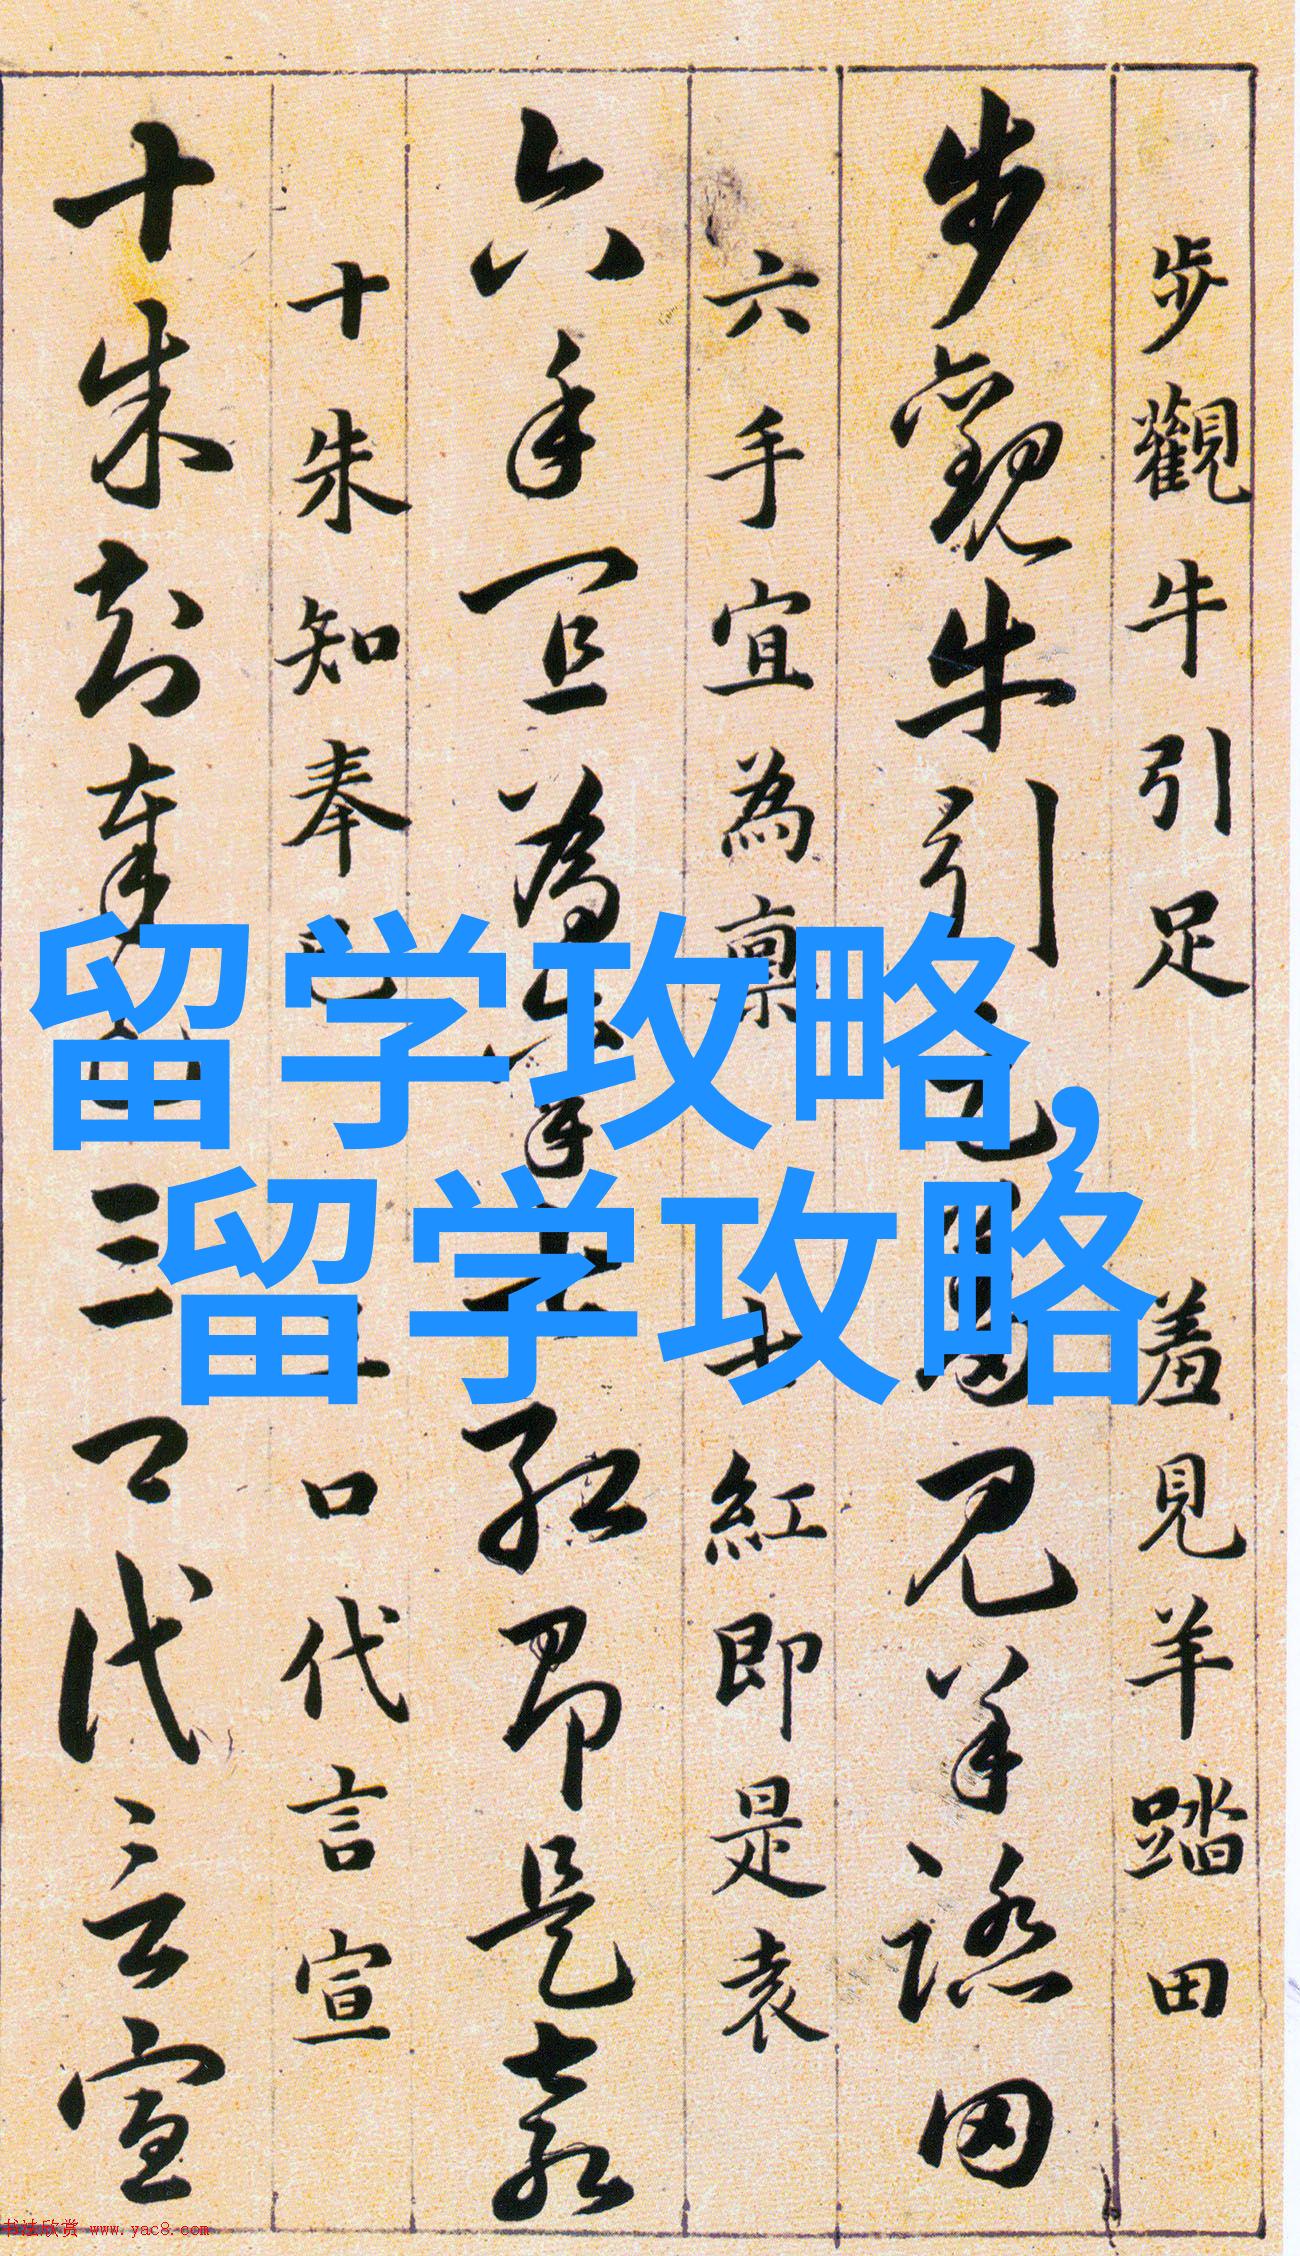 步觀牛引足 羞見羊踏田
步觀牛引足羞見羊踏田
六手宜為稟 七紅即是袁
六手宜為稟七紅即是袁
十朱知奉已 三口代言宣
十朱知奉已三口代言宣
留学攻略,
留学攻略
书法欣赏 www.yac8.com